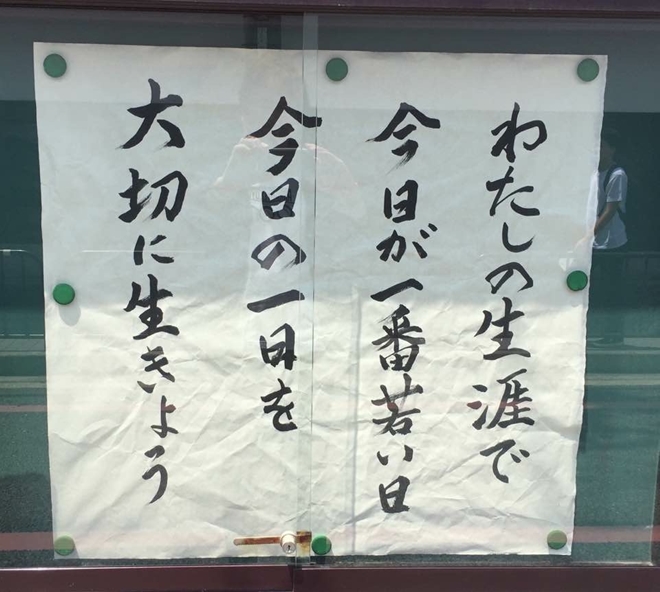 わたしの生涯で
今日が一番若い日
今日の一日を
大切に生きよう